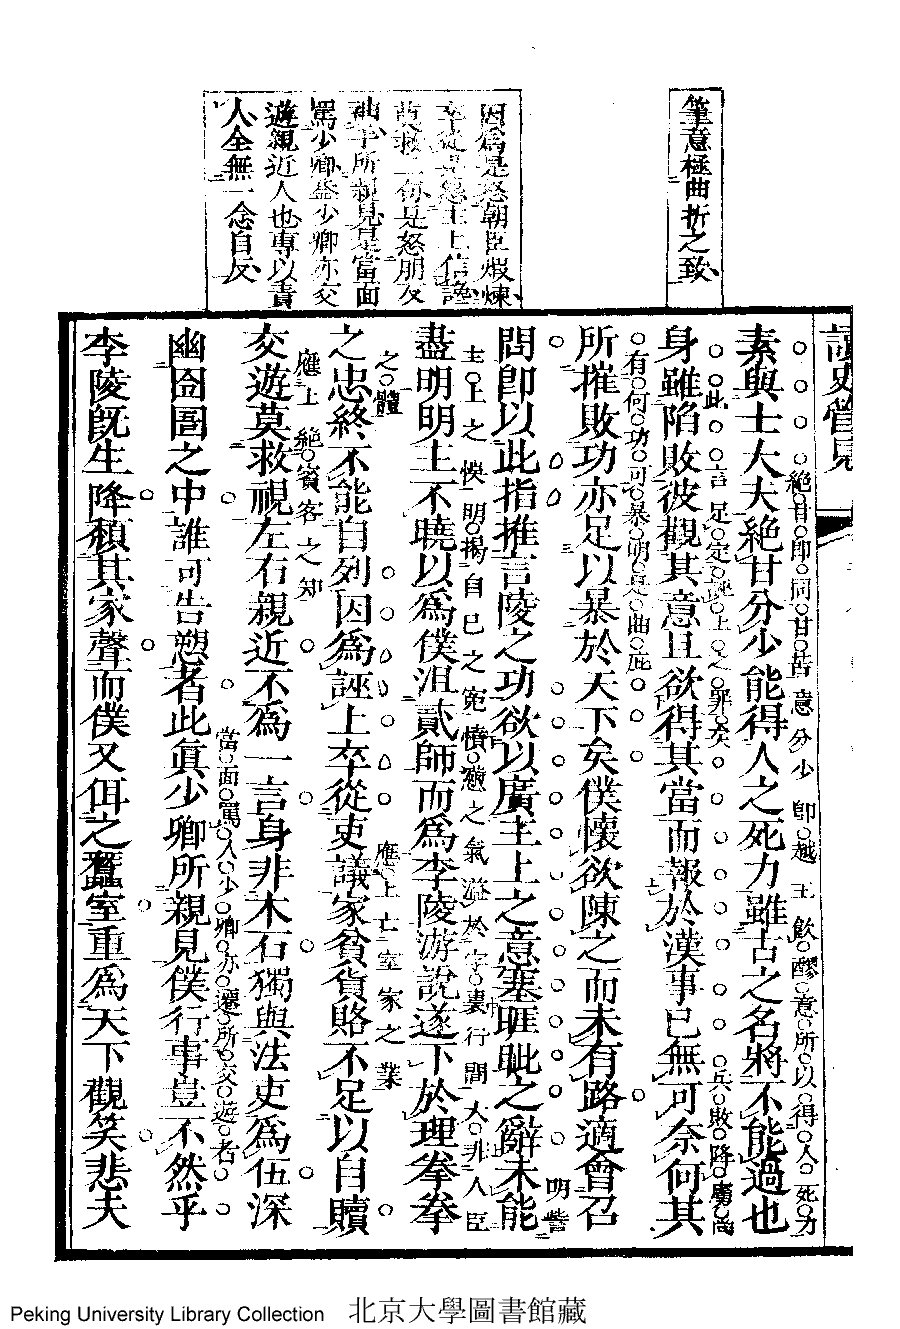 筆意極曲折之致
因爲是怒朝臣煆煉
卒從是怨主上信讒
莫救二句是怒朋友
幽手所親見是當面
罵少卿葢少卿亦交
遊親近人也專以責
人全無一念自反
讀史管見
絶甘即同甘苦意分少即越王飲醪意所以得人死力
素與士大夫絶甘分少能得人之死力雖古之名將不能過也
此言足定陵上之罪矣兵敗降虜尚
身雖陷敗彼觀其意且欲得其當而報於漢事已無可奈何其
有何功可暴明是曲庇
所摧敗功亦足以暴於天下矣僕懷欲陳之而未有路適會召
明訾
問卽以此指推言陵之功欲以廣主上之意塞睚眦之辭未能
主上之懊明揭自已之寃憤懣之氣溢於字裏行間大非人臣
盡明明主不曉以爲僕沮貳師而爲李陵游說遂下於理拳拳
之體應上亡室家之業
之忠終不能自列因爲誣上卒從吏議家貧貨賂不足以自贖
應上絕賓客之知
交遊莫救視左右親近不爲一言身非木石獨與法吏爲伍深
當面罵人少卿亦還所交遊者
幽囹圄之中誰可告愬者此眞少卿所親見僕行事豈不然乎
李陵旣生降穨其家聲而僕又佴之蠶室重爲天下觀笑悲夫
Peking University Library Collection 北京大學圖書館藏